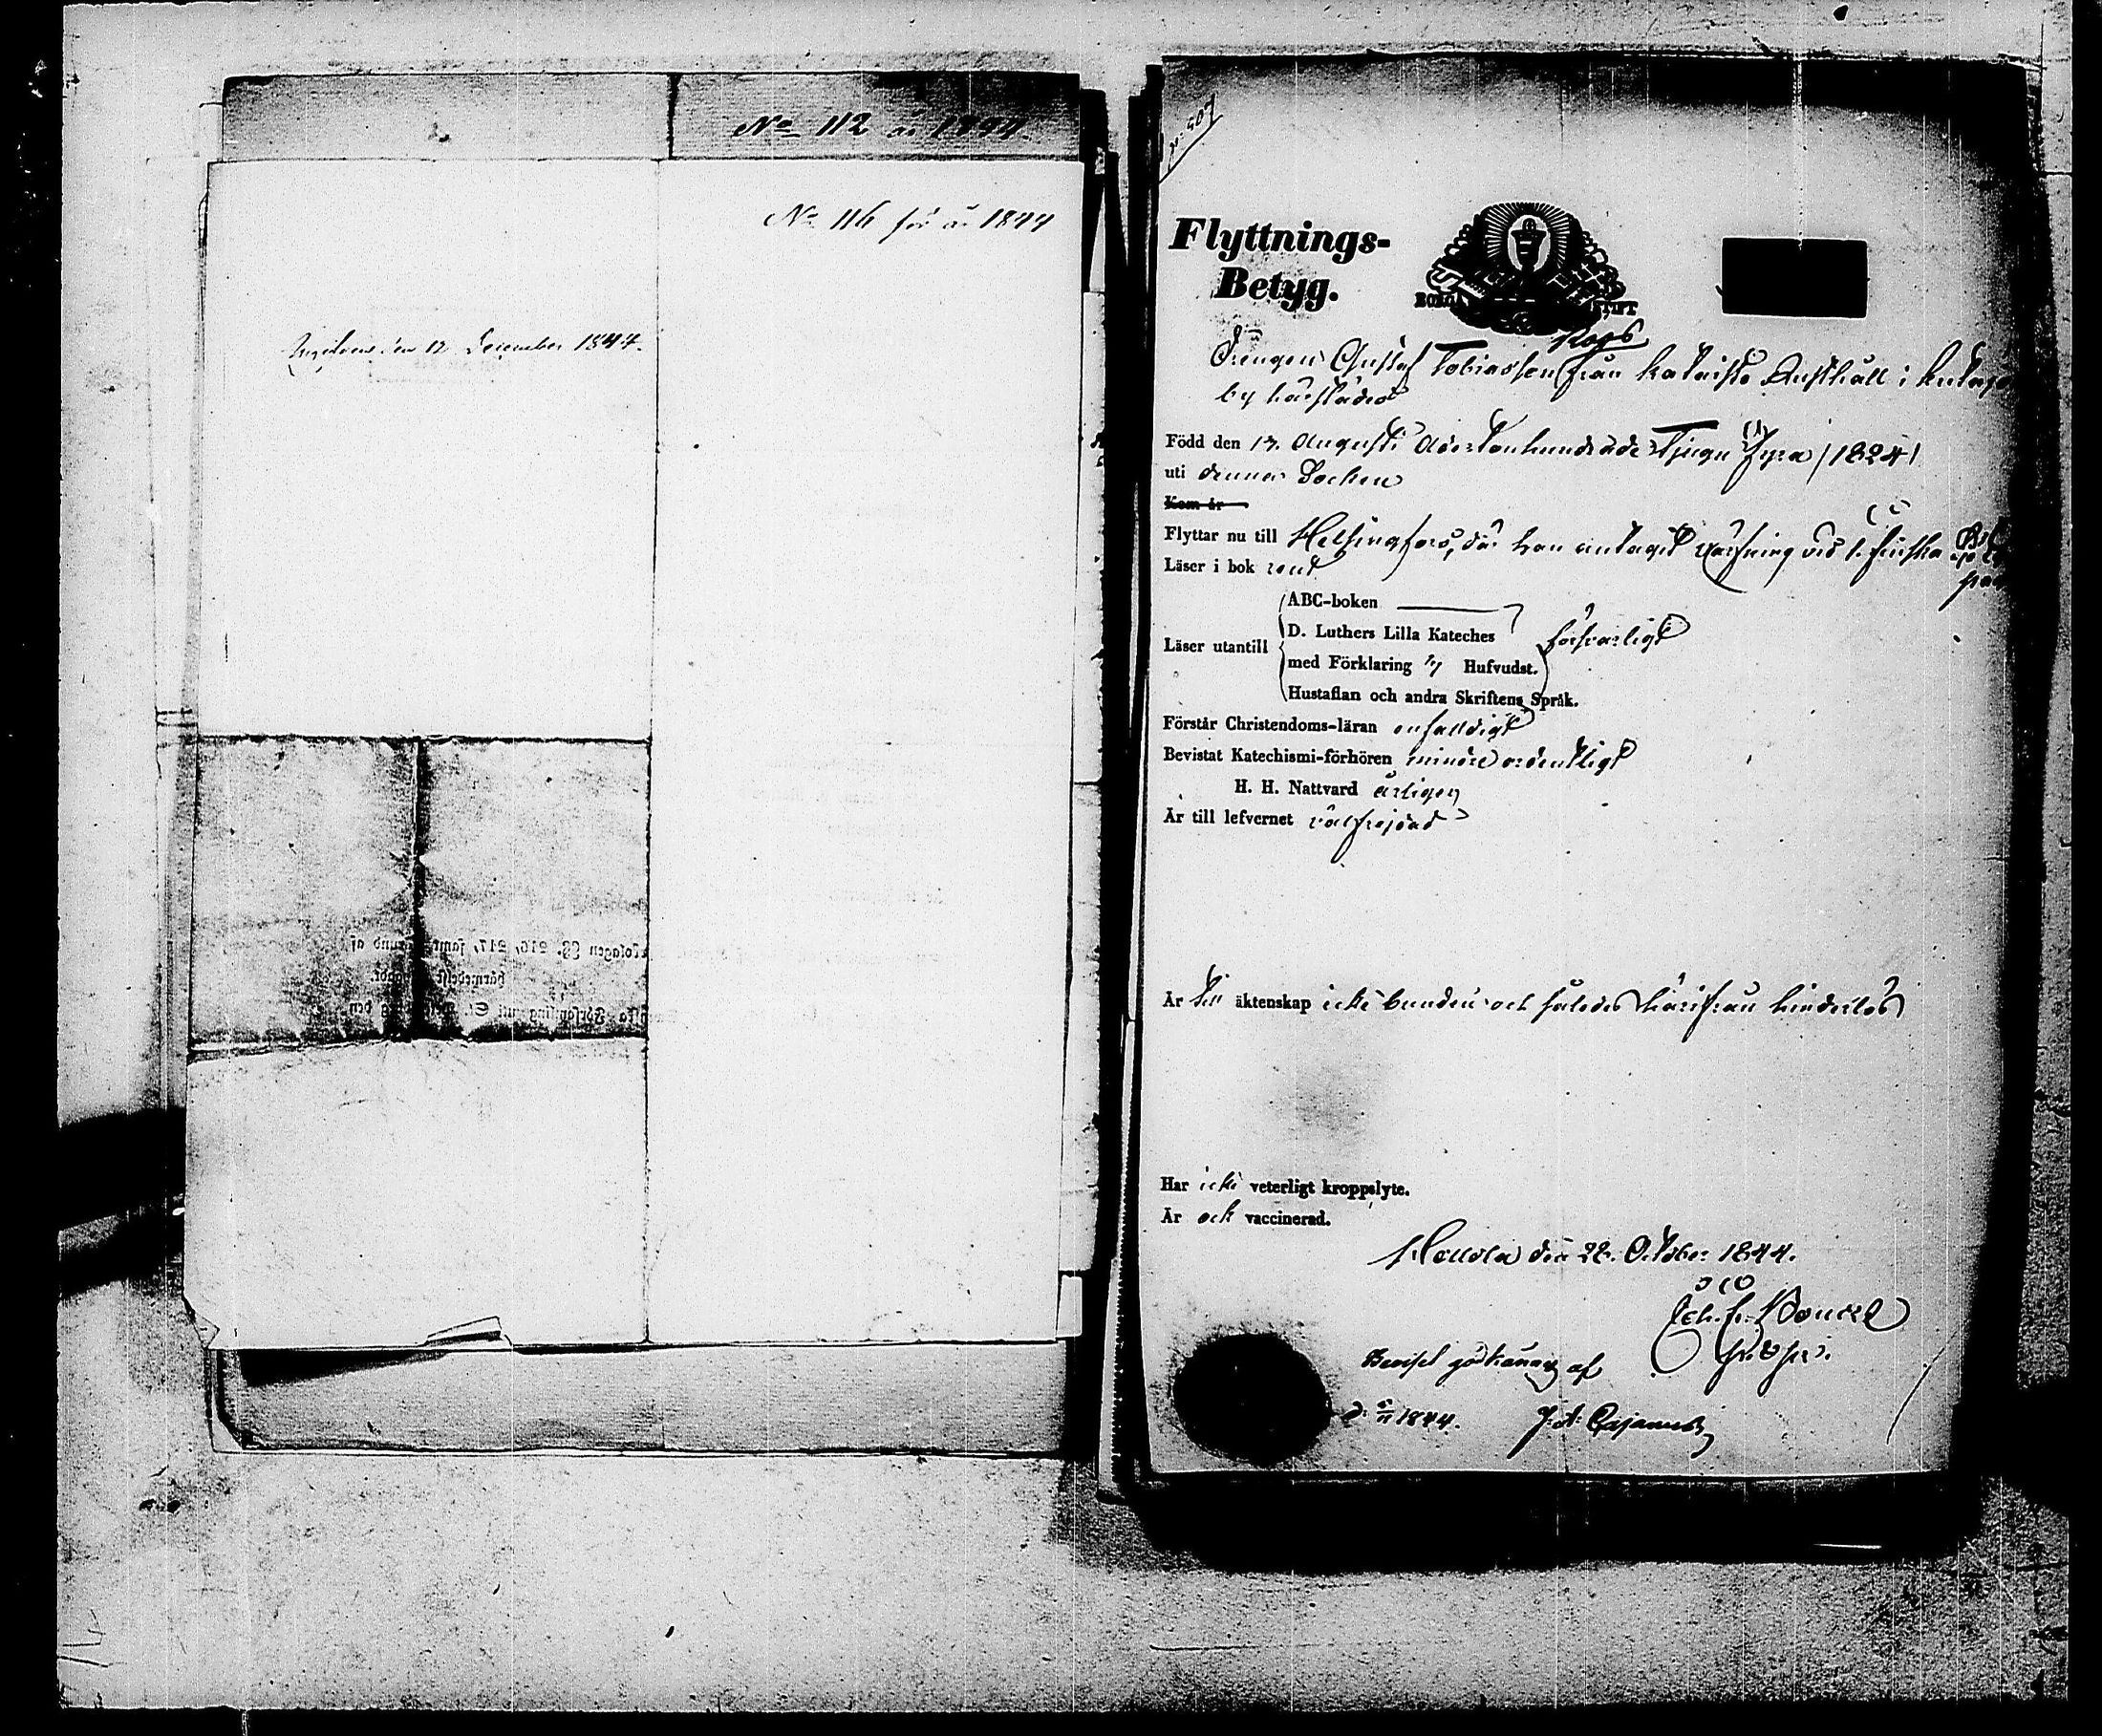 No 112 år 1844.
No 116 för år 1844
Ingifven den 12 December 1844.
p. 507
Flyttnings-
Betyg.
BORGÅ STIFT
Rops
Drengen Gustaf Tobiasson från Katariste Rusthåll i
by härstädes
Född den 13. Augusti Adertonhundrade Tjugu fyra /1824/
uti denna Socken
Kom år
Flyttar nu till Helsingfors, där han antagit värfning vid 1. Finska
Läser i bok rent
Läser utantill
ABC-boken
D. Luthers Lilla Kateches
med Förklaring Hufvudst.
Hustaflan och andra Skriftens Språk.
försvarligt
Förstår Christendoms-läran enfalldigt
Bevistat Katechismi-förhören mindre ordentligt
H. H. Nattvard årligen
Är till lefvernet välfrejdad
Är till äktenskap icke bunden och således härifrån hinderlös
Har icke veterligt kroppslyte.
Är ock vaccinerad.
Hollola den 22. October 1844.
Joh. Fr. Bonsel
Beviset godkännes af
d. 5/11 1844. J. A. Cajanus